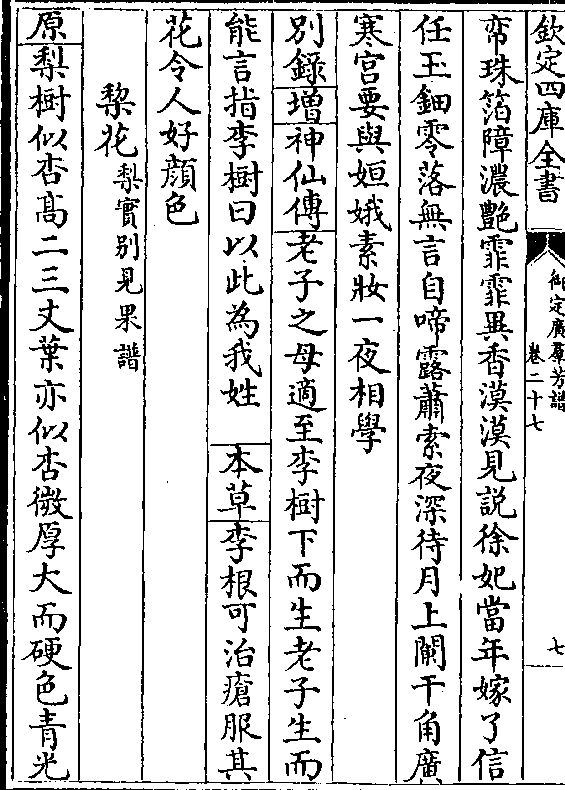 欽定四庫全書
御定廣羣芳譜
卷二十七
七
帘珠箔障濃艷霏霏異香漠漠見説徐妃當年嫁了信
任玉鈿零落無言自啼露蕭索夜深待月上闌干角廣
寒宮要與姮娥素妝一夜相學
別錄增神仙傳老子之母適至李樹下而生老子生而
能言指李樹曰以此為我姓 本草李根可治瘡服其
花令人好顔色
棃花棃實别見果譜
原棃樹似杏髙二三丈葉亦似杏微厚大而硬色青光